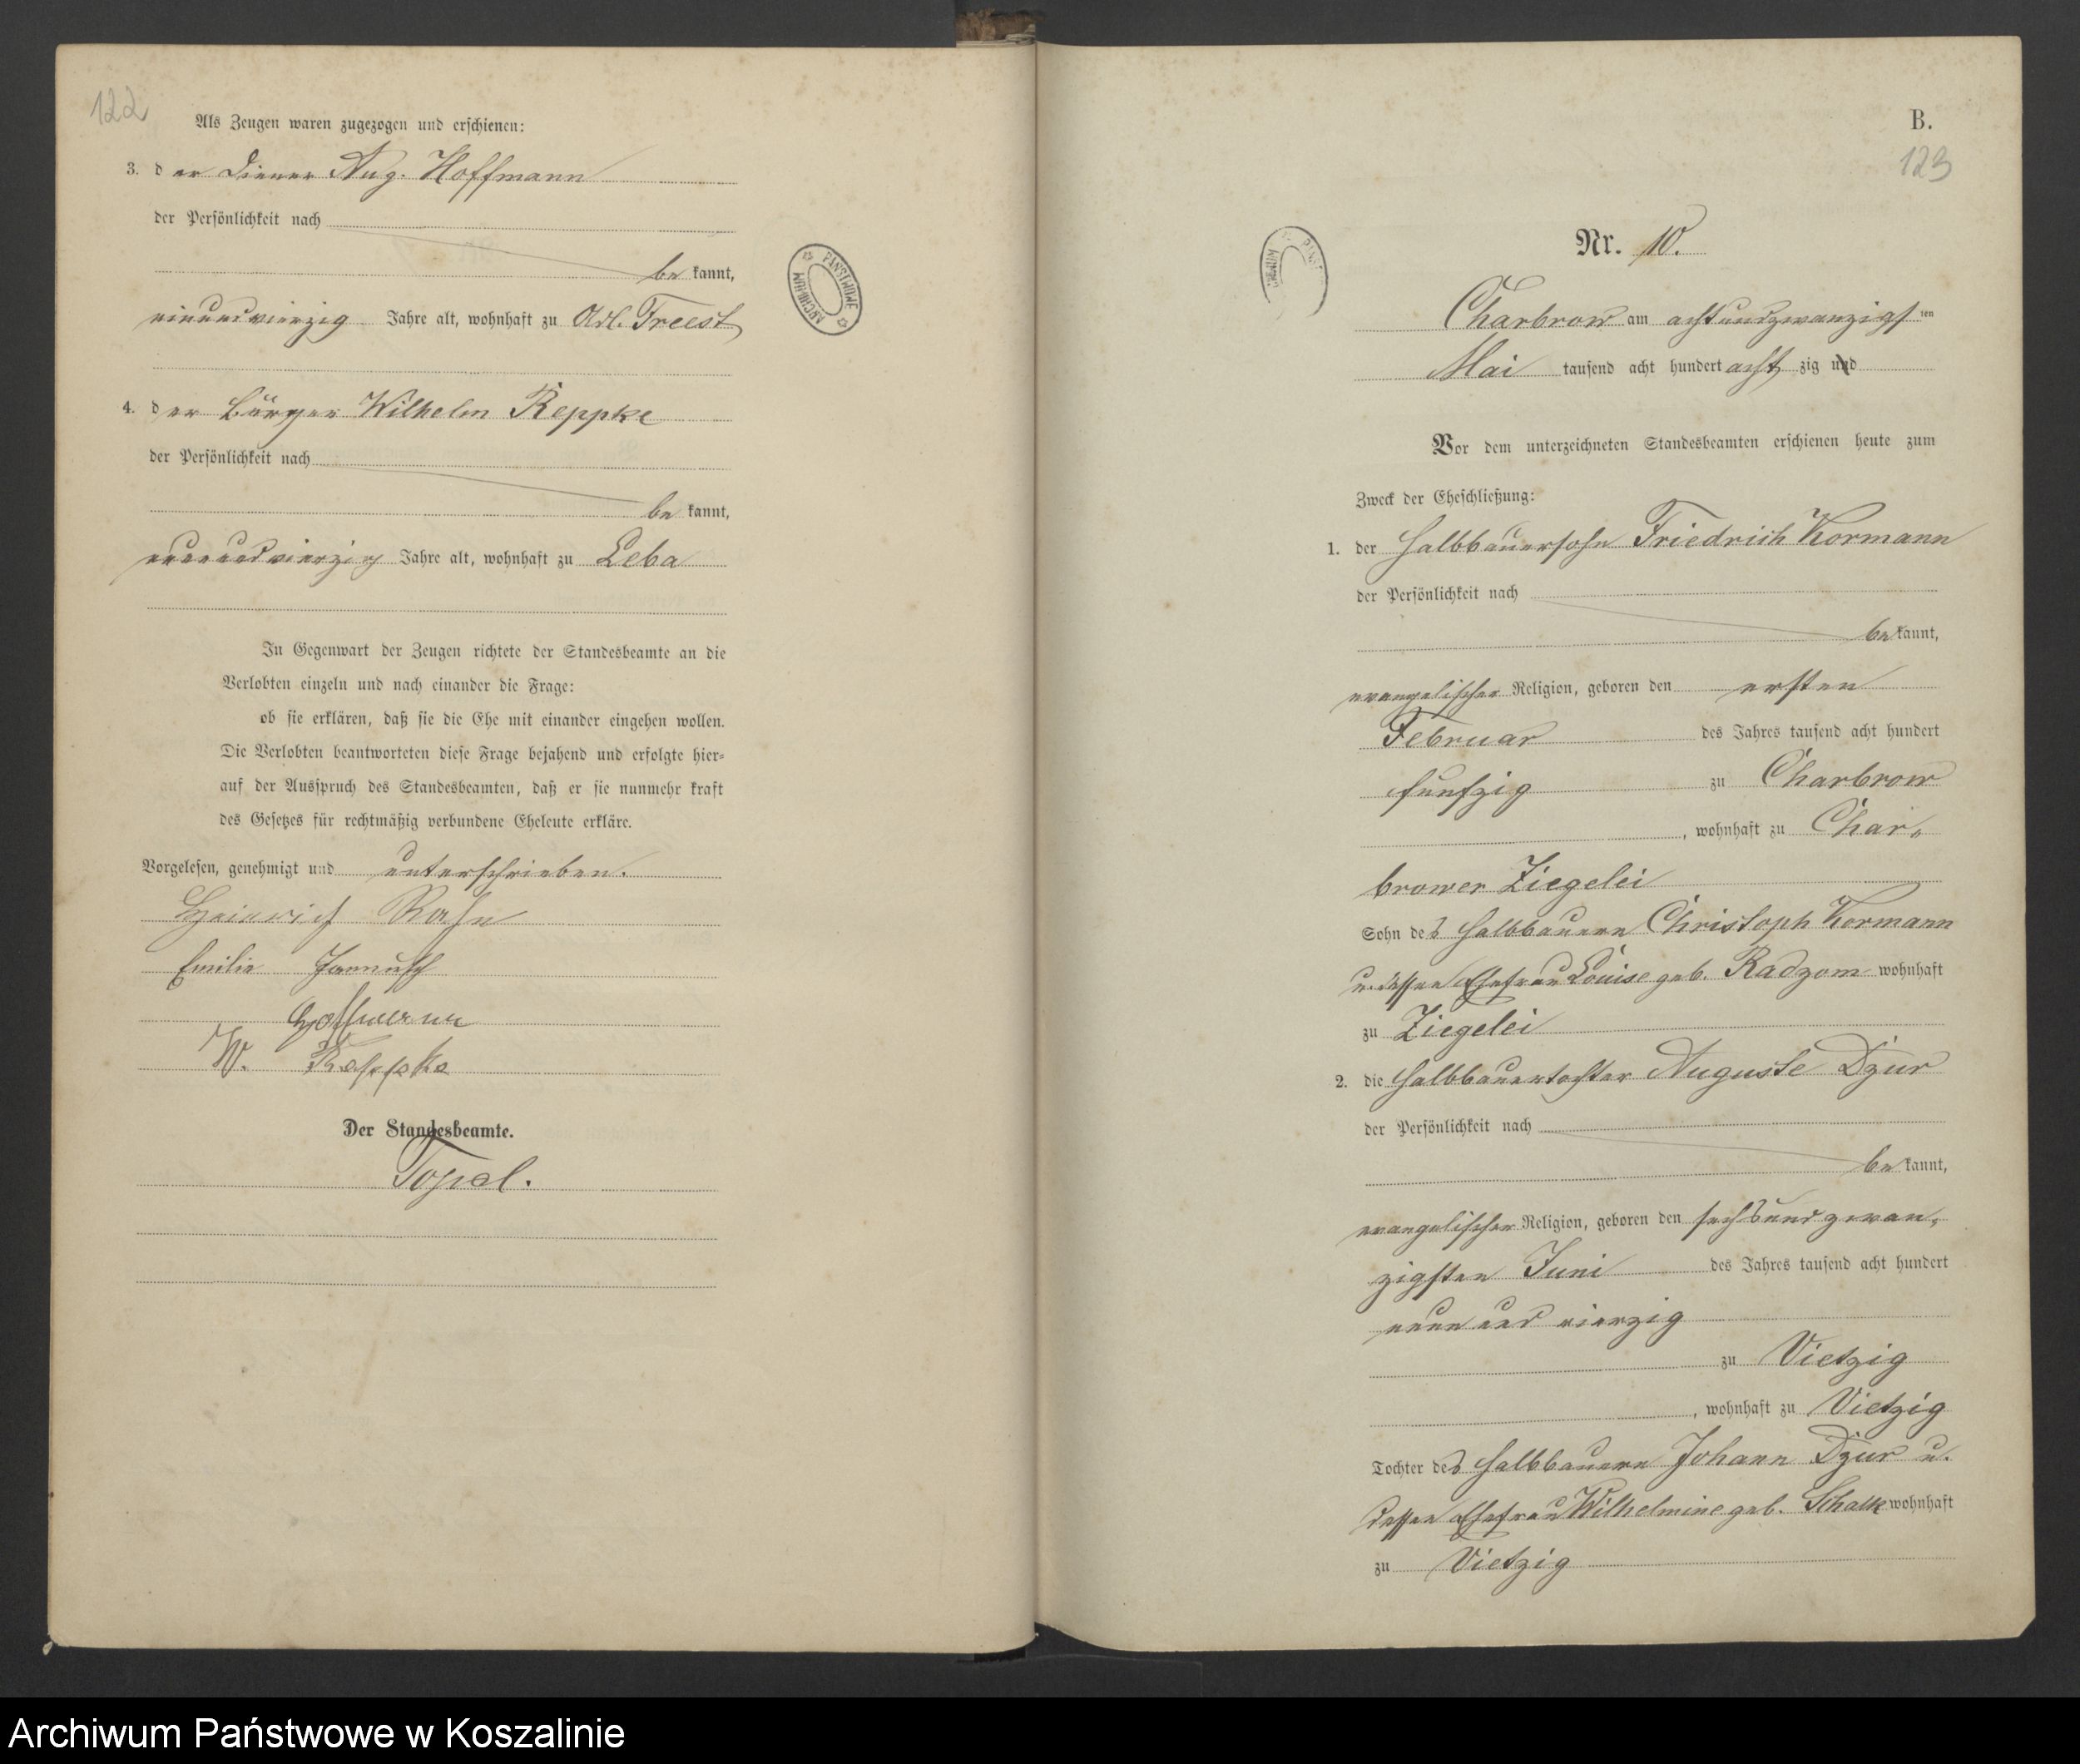 122
Als Zeugen waren zugezogen und erschienen:
3. der Diener Aug. Hoffmann
der Persönlichkeit nach
bekannt,
einundvierzig Jahre alt, wohnhaft zu Adl. Freest
4. der Bürger Wilhelm Reppke
der Persönlichkeit nach
bekannt,
neunundvierzig Jahre alt, wohnhaft zu Leba
In Gegenwart der Zeugen richtete der Standesbeamte an die
Verlobten einzeln und nach einander die Frage:
ob sie erklären, daß sie die Ehe mit einander eingehen wollen.
Die Verlobten beantworteten diese Frage bejahend und erfolgte hier=
auf der Ausspruch des Standesbeamten, daß er sie nunmehr kraft
des Gesetzes für rechtmäßig verbundene Eheleute erkläre.
Vorgelesen, genehmigt und unterschrieben.
Heinrich Rahn
Emilie
Hoffmann
W. Reppke
Der Standesbeamte.
ARCHIWUM PAŃSTWOWE
B.
123
Nr. 10.
Charbrow am achtundzwanzigsten
Mai tausend acht hundert achtzig und
Vor dem unterzeichneten Standesbeamten erschienen heute zum
Zweck der Eheschließung:
1. der Halbbauersohn Friedrich Kormann
der Persönlichkeit nach
bekannt,
evangelischer Religion, geboren den ersten
Februar des Jahres tausend acht hundert
funfzig zu Charbrow
, wohnhaft zu Char=
brower Ziegelei
Sohn des Halbbauern Christoph Kormann
u. dessen Ehefrau Louise geb. Radzom wohnhaft
zu Ziegelei
2. die Halbbauertochter Auguste Dzur
der Persönlichkeit nach
bekannt,
evangelischer Religion, geboren den sechsundzwan=
zigsten Juni des Jahres tausend acht hundert
neun und vierzig
zu Vietzig
, wohnhaft zu Vietzig
Tochter des Halbbauern Johann Dzur u.
dessen Ehefrau Wilhelmine geb. Schalk wohnhaft
zu Vietzig
Archiwum Państwowe w Koszalinie